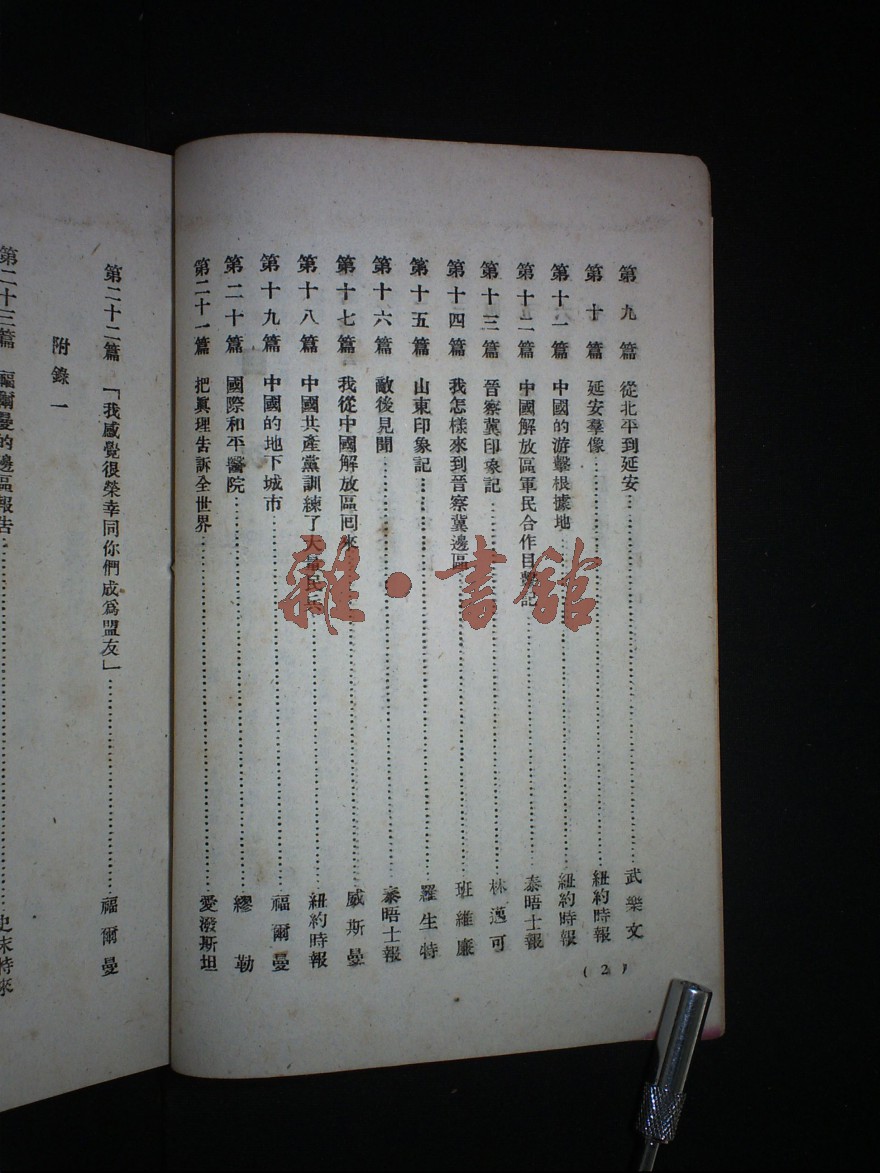 第九篇 從北平到延安……武樂文
第十篇 延安羣像……紐約時報
第十一篇 中國的游擊根據地……紐約時報
第十二篇 中國解放區軍民合作目擊記……泰晤士報
第十三篇 晉察冀印象記……林邁可
第十四篇 我怎樣來到晉察冀邊區……班維廉
第十五篇 山東印象記……羅生特
第十六篇 敵後見聞……泰晤士報
第十七篇 我從中國解放區囘來……威斯曼
第十八篇 中國共產黨訓練了大量民兵……紐約時報
第十九篇 中國的地下城市……福爾曼
第二十篇 國際和平醫院……繆勒
第二十一篇 把眞理告訴全世界……愛潑斯坦
(2)
第二十二篇 「我感覺很榮幸同你們成爲盟友」……福爾曼
附錄一
第二十三篇 福爾曼的邊區報告……史末特來
雜·書館